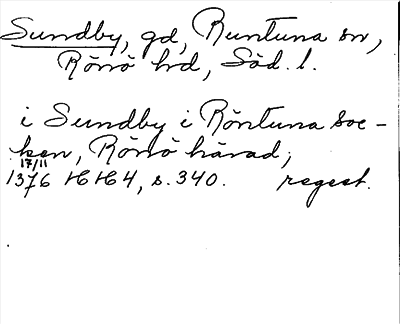 Sundby, gd, Runtuna sn,
Rönö hd, Söd. l.
i Sundby i Röntuna soc-
ken, Rönö härad;
17/11
1376 HH 4, s. 340. regest.